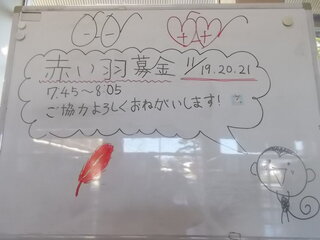 赤い羽募金 11/19.20.21
7:45〜8:05
ご協力よろしくおねがいします!